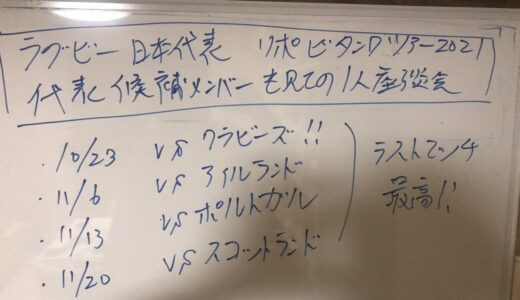 ラグビー日本代表 リポビタンDツアー2021
代表候補メンバーも見ての1人座談会
・10/23 vs ワラビーズ!!
・11/6 vs アイルランド
・11/13 vs ポルトガル
・11/20 vs スコットランド
ラストマッチ
最高!!